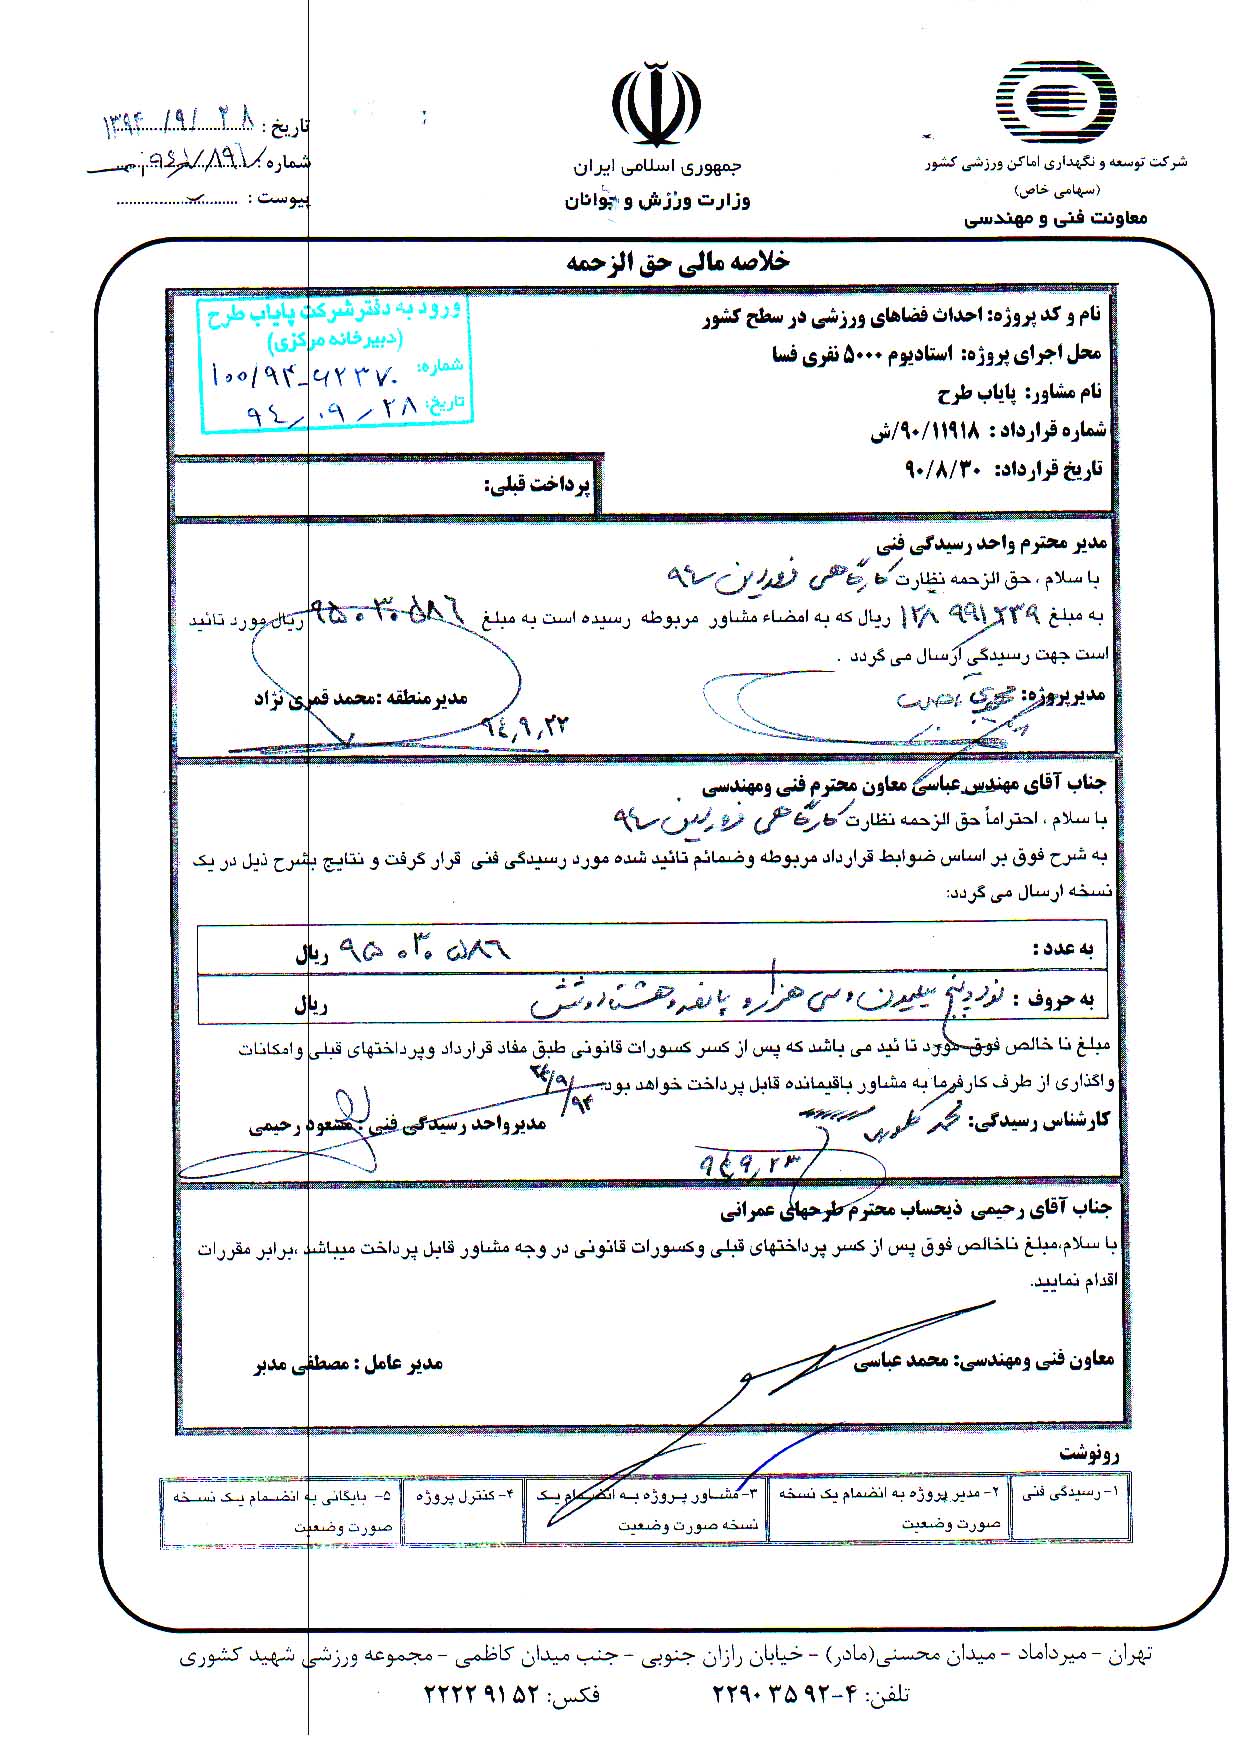 شرکت توسعه و نگهداری اماکن ورزشی کشور
(سهامی خاص)
معاونت فنی و مهندسی
جمهوری اسلامی ایران
وزارت ورزش و جوانان
تاریخ : ۱۳۹۴/۹/۲۸
شماره :
پیوست :
خلاصه مالی حق الزحمه
ورود به دفتر شرکت پایاب طرح
(دبیرخانه مرکزی)
شماره: ۱۰۰/۹۴-۶۲۳۷۰
تاریخ: ۹۴/۰۹/۲۸
نام و کد پروژه: احداث فضاهای ورزشی در سطح کشور
محل اجرای پروژه: استادیوم ۵۰۰۰ نفری فسا
نام مشاور: پایاب طرح
شماره قرارداد : ۹۰/۱۱۹۱۸/ش
تاریخ قرارداد: ۹۰/۸/۳۰
پرداخت قبلی:
مدیر محترم واحد رسیدگی فنی
با سلام ، حق الزحمه نظارت کارگاهی فروردین ۹۴
به مبلغ ۱۲۸ ۹۹۱ ۲۳۹ ریال که به امضاء مشاور مربوطه رسیده است به مبلغ ۹۵۰۳۰۵۸۶ ریال مورد تائید
است جهت رسیدگی ارسال می گردد .
مدیرپروژه:
مدیر منطقه :محمد قمری نژاد
۹۴,۹,۲۲
جناب آقای مهندس عباسی معاون محترم فنی ومهندسی
با سلام ، احتراماً حق الزحمه نظارت کارگاهی فروردین ۹۴
به شرح فوق بر اساس ضوابط قرارداد مربوطه وضمائم تائید شده مورد رسیدگی فنی قرار گرفت و نتایج بشرح ذیل در یک
نسخه ارسال می گردد:
به عدد : ۹۵۰۳۰۵۸۶ ریال
به حروف : نود و پنج میلیون و سی هزار و پانصد و هشتاد و شش ریال
مبلغ نا خالص فوق مورد تا ئید می باشد که پس از کسر کسورات قانونی طبق مفاد قرارداد وپرداختهای قبلی وامکانات
واگذاری از طرف کارفرما به مشاور باقیمانده قابل پرداخت خواهد بود.
کارشناس رسیدگی:
مدیرواحد رسیدگی فنی : مسعود رحیمی
۹۴,۹,۲۳
جناب آقای رحیمی ذیحساب محترم طرحهای عمرانی
با سلام،مبلغ ناخالص فوق پس از کسر پرداختهای قبلی وکسورات قانونی در وجه مشاور قابل پرداخت میباشد ،برابر مقررات
اقدام نمایید.
معاون فنی ومهندسی: محمد عباسی
مدیر عامل : مصطفی مدبر
رونوشت
۱-رسیدگی فنی
۲- مدیر پروژه به انضمام یک نسخه
صورت وضعیت
۳- مشاور پروژه به انضمام یک
نسخه صورت وضعیت
۴- کنترل پروژه
۵- بایگانی به انضمام یک نسخه
صورت وضعیت
تهران - میرداماد - میدان محسنی(مادر) - خیابان رازان جنوبی - جنب میدان کاظمی - مجموعه ورزشی شهید کشوری
تلفن: ۴-۹۲ ۳۵ ۲۲۹۰ فکس: ۵۲ ۹۱ ۲۲۲۲